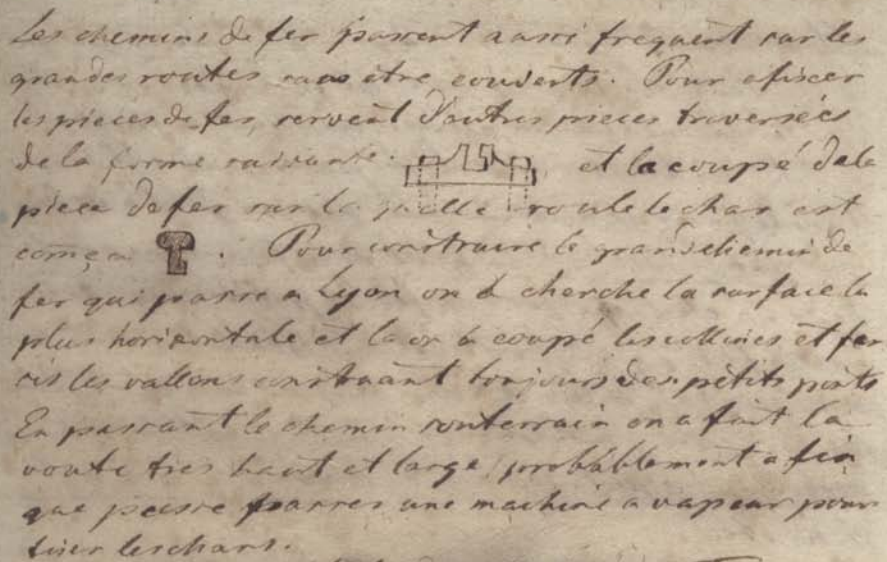 Les chemins de fer passent aussi frequent sur les
grandes routes sans etre couverts. Pour afixer
les pieces de fer, servent d'autres pieces traversées
de la forme suivante. et la coupé de la
piece de fer sur la quelle roule le char est
come ça . Pour construire le grand chemin de
fer qui passe a Lyon on à cherche la surface la
plus horizontale et la on à coupé les collines et
les vallons construant toujours des petits ponts
En passant le chemin souterrain on a fait la
voute tres haut et large probablement a fin
que puisse passer une machine a vapeur pour
tirer les chars.